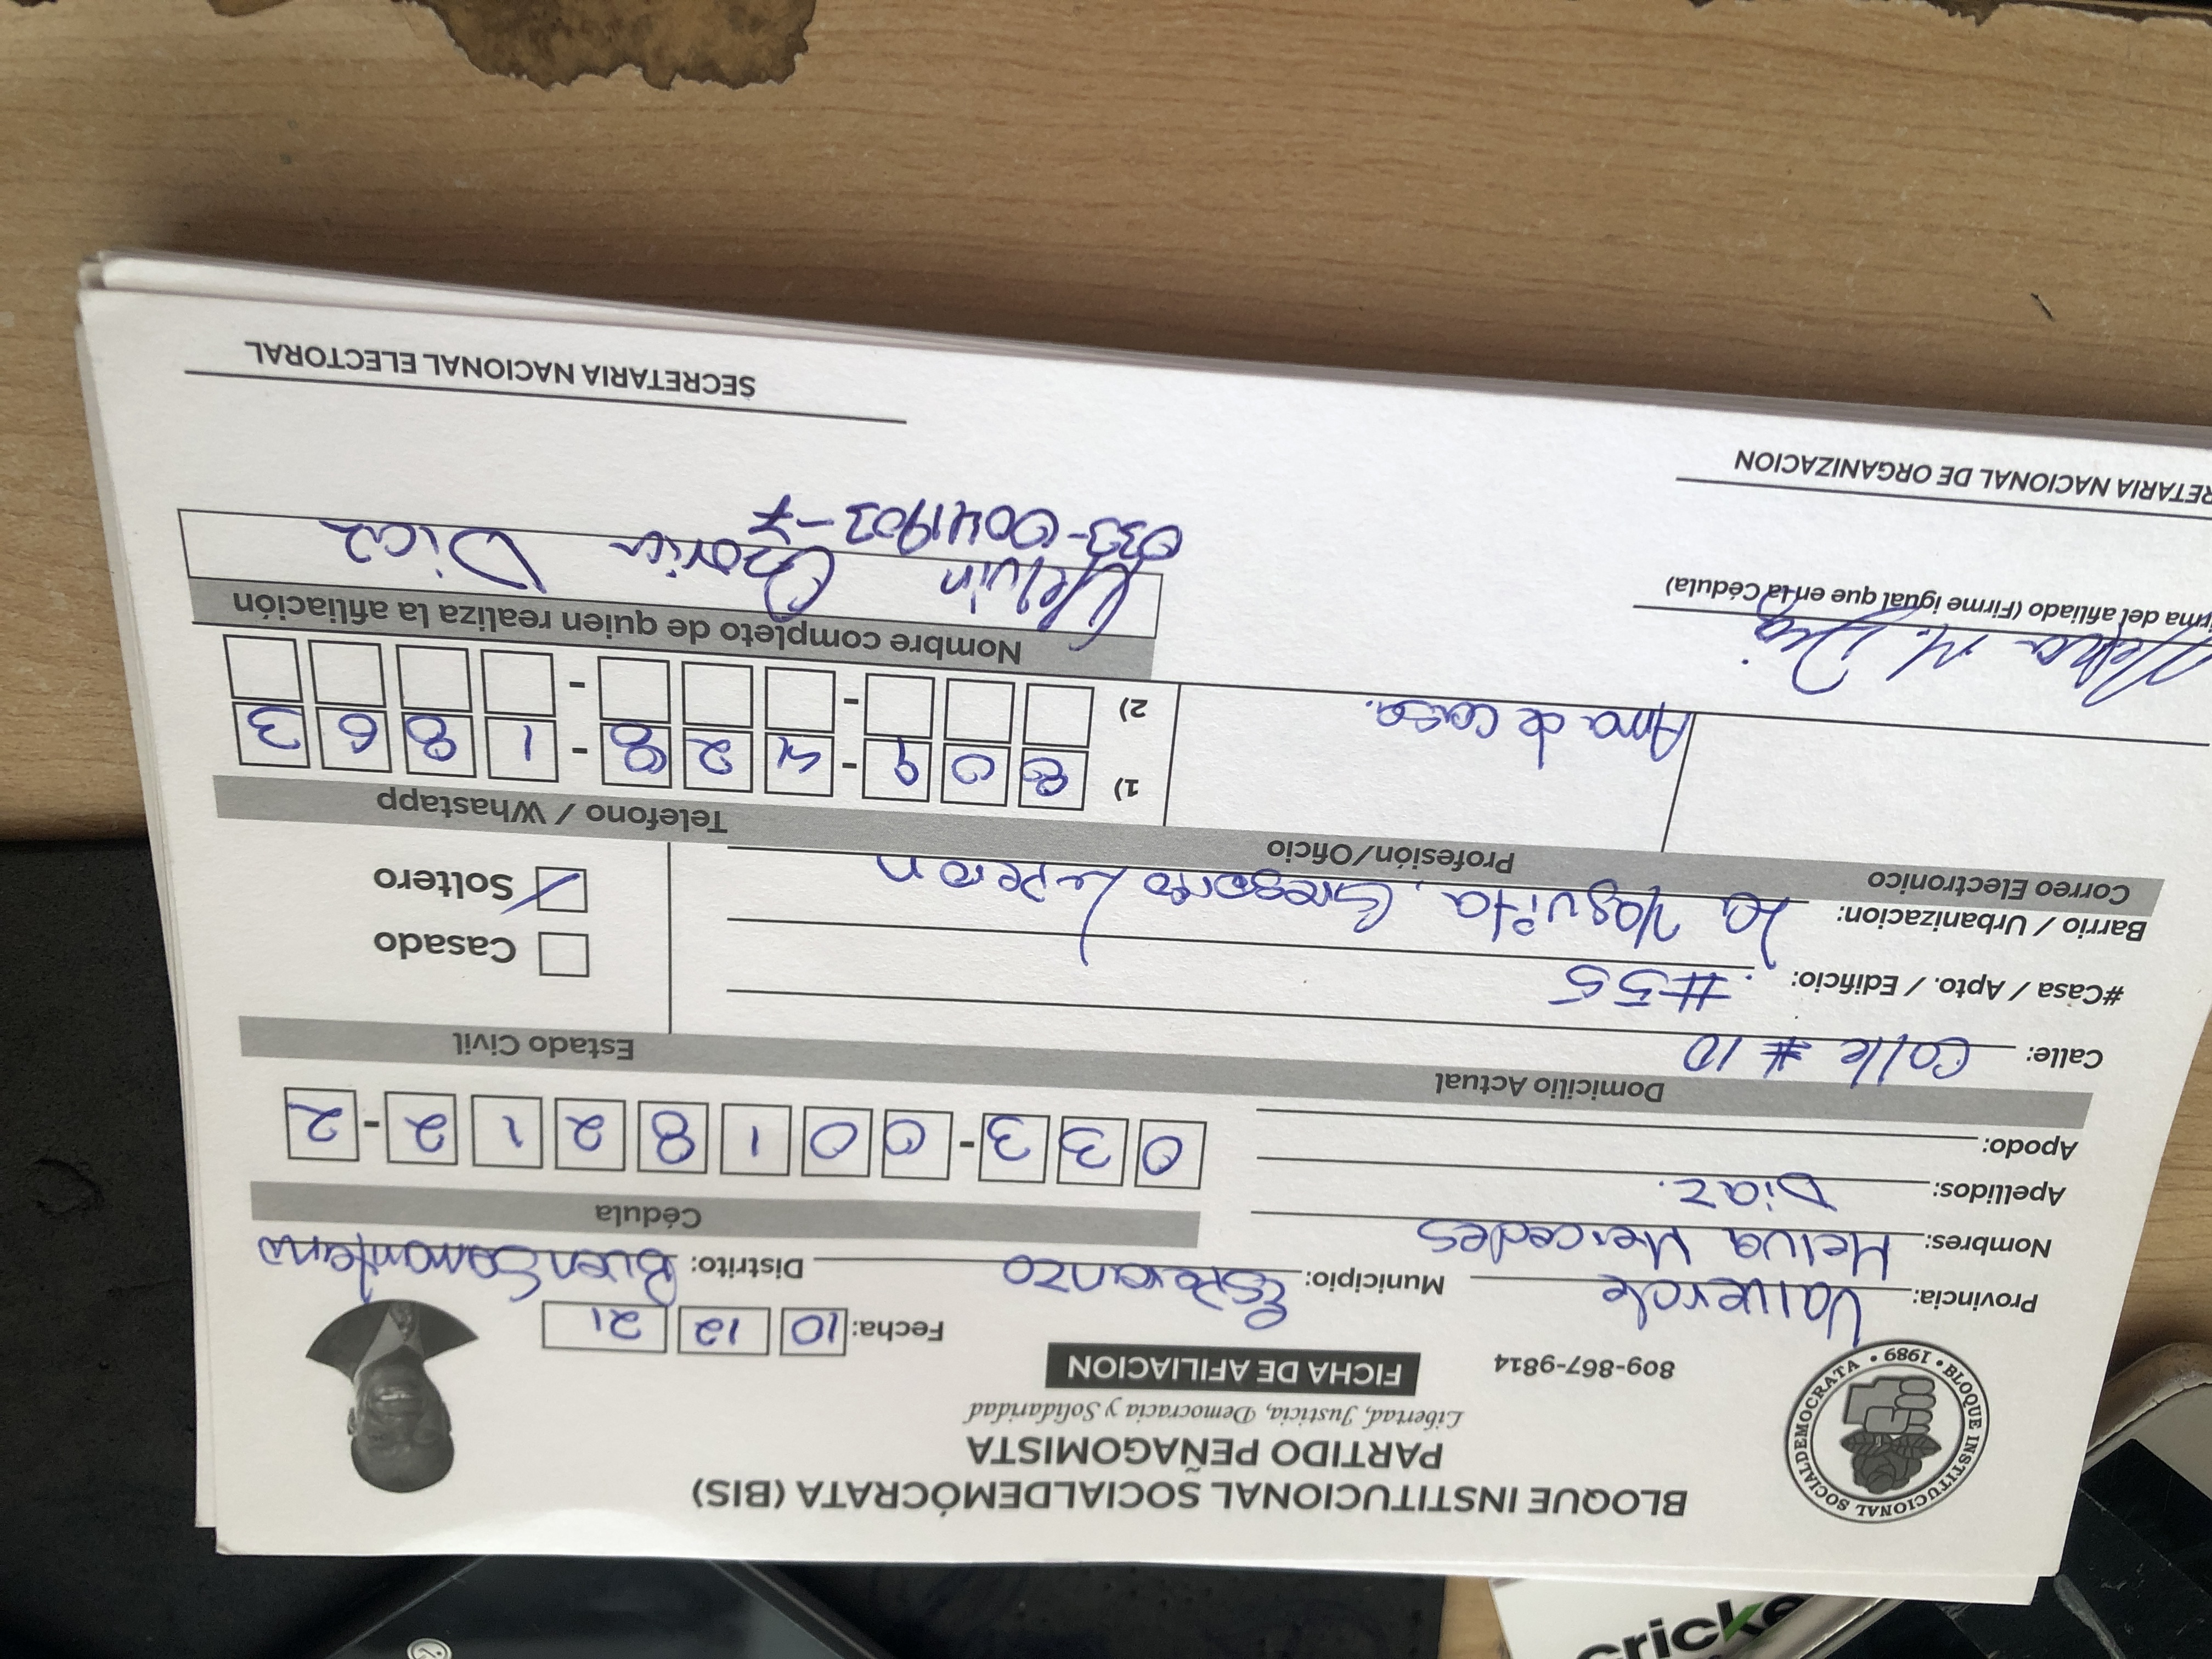 BLOQUE INSTITUCIONAL SOCIALDEMÓCRATA (BIS)
PARTIDO PEÑAGOMISTA
Libertad, Justicia, Democracia y Solidaridad
BLOQUE INSTITUCIONAL SOCIALDEMOCRATA • 1989 •
809-867-9814 FICHA DE AFILIACION Fecha: 10 12 21
Provincia: Valverde Municipio: Esperanza Distrito: Buen
Nombres: Melva Mercedes
Apellidos: Diaz.
Apodo:
Cédula
033-0018212-2
Domicilio Actual Estado Civil
Calle: Calle # 10
#Casa / Apto. / Edificio: #55
Barrio / Urbanizacion: La Yaguita, Gregorio Luperon
Casado
Soltero
Correo Electronico Profesión/Oficio Telefono / Whastapp
Ama de casa.
1) 809-428-1863
2)
Nombre completo de quien realiza la afiliación
Melvin Diaz
033-0041903-7
Melva M. Diaz
rma del afiliado (Firme igual que en la Cédula)
RETARIA NACIONAL DE ORGANIZACION
SECRETARIA NACIONAL ELECTORAL
cricke